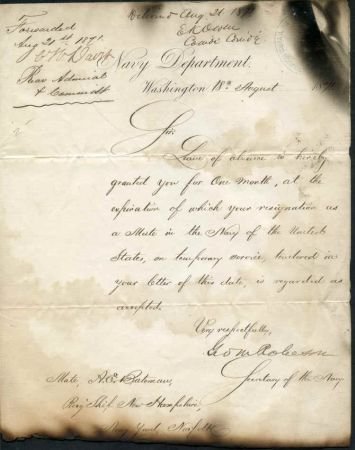 Forwarded
Aug 21st 1871.
Rear Admiral
& Commdt
Aug. 21
Navy Department.
Washington 18th August 187
Sir:
Leave of absence is hereby
granted you for One month, at the
expiration of which your resignation as
a Mate in the Navy of the United
States, on temporary service, tendered in
your letter of this date, is regarded as
accepted.
Very respectfully,
Geo M Robeson
Secretary of the Navy
Mate, A. E. Bateman,
Recg Ship New Hampshire,
Navy Yard, Norfolk